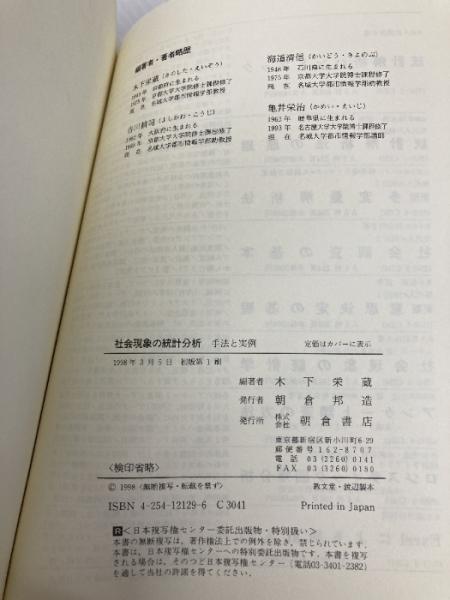 編著者・著者略歴
木下栄蔵（きのした・えいぞう）
1949年 京都府に生まれる
1975年 京都大学大学院修士課程修了
現 在 名城大学都市情報学部教授
吉川耕司（よしかわ・こうじ）
1962年 大阪府に生まれる
1989年 京都大学大学院博士課程修了
現 在 名城大学都市情報学部助教授
海道清信（かいどう・きよのぶ）
1948年 石川県に生まれる
1975年 京都大学大学院博士課程修了
現 在 名城大学都市情報学部助教授
亀井栄治（かめい・えいじ）
1963年 岐阜県に生まれる
1993年 名古屋大学大学院博士課程修了
現 在 名城大学都市情報学部講師
社会現象の統計分析 手法と実例 定価はカバーに表示
1998年3月5日 初版第1刷
編著者 木下栄蔵
発行者 朝倉邦造
発行所 株式会社 朝倉書店
東京都新宿区新小川町6-29
郵便番号 162-8707
電話 03(3260)0141
FAX 03(3260)0180
〈検印省略〉
© 1998〈無断複写・転載を禁ず〉 教文堂・渡辺製本
ISBN 4-254-12129-6 C3041 Printed in Japan
R〈日本複写権センター委託出版物・特別扱い〉
本書の無断複写は，著作権法上での例外を除き，禁じられています．
本書は，日本複写権センターへの特別委託出版物です．本書を複写
される場合は，そのつど日本複写権センター（電話03-3401-2382）
を通して当社の許諾を得てください．